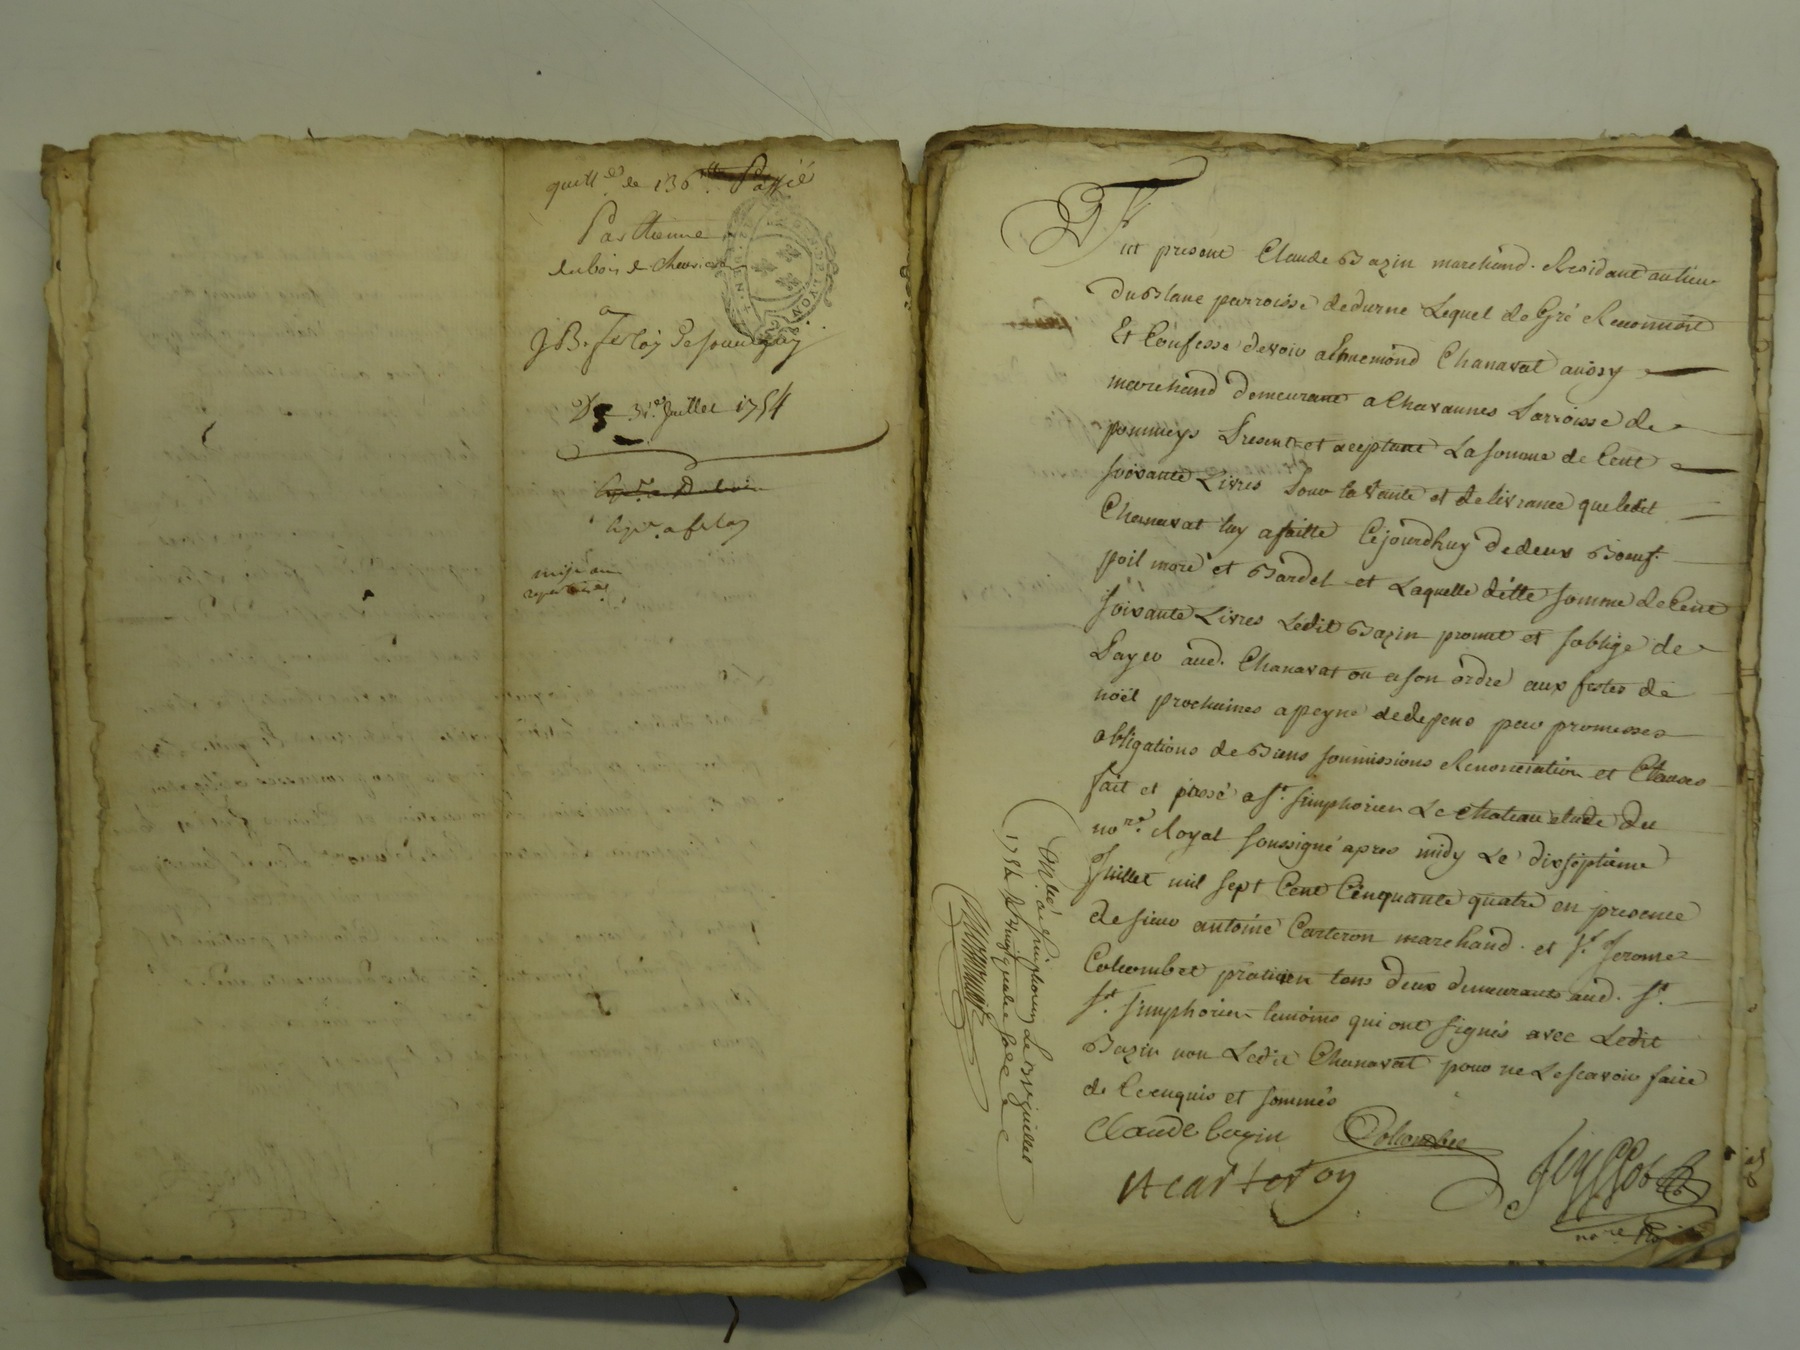 quitt.ce de 136 ll Passé
Par Etienne
dubois de Chevrieres
a
J B. Ferlay de
Du 31.e Juillet 1754
a ferlay
mise au
repertoire
Fut present Claude Bazin marchand. Residant au lieu
Du Blanc parroisse de durne Lequel de Gré Reconnoit
Et Confesse devoir a Ennemond Chanavat aussy
marchand demeurant a Chavannes Parroisse de
pommeys Present et aceptant La somme de Cent
soixante Livres Pour la vante et delivrance que ledit
Chanavat luy a faitte Cejourdhuy de deux Bœufs
poil more et Bardel et Laquelle ditte somme de Cent
soixante Livres Ledit Bazin promet et soblige de
Payer aud. Chanavat ou a son ordre aux festes de
noël prochaines a peyne de depens par promesses
obligations de Biens soumissions Renonciation et Clauses
fait et passé a St. simphorien Le Chateau etude du
no.re Royal soussigné apres midy Le dixseptieme
Juillet mil sept Cent Cinquante quatre en presence
de sieur antoine Carteron marchand. et Sr. Jerome
Colcombet praticien tous deux demeurants aud. St.
St. simphorien temoins qui ont signés avec Ledit
Bazin non Ledit Chanavat pour ne Le scavoir faire
de Ce enquis et sommés
Claude bazin Colcombet
A carteron
no.re
Con.lé a St. simphorien Le 28 juillet
1754 R